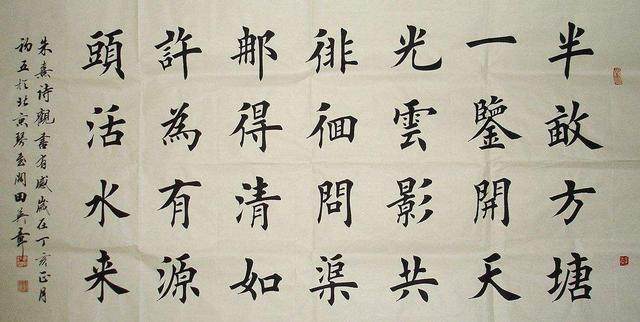 半畝方塘
一鑒開天
光雲影共
徘徊問渠
那得清如
許為有源
頭活水来
朱熹诗觀書有感歲在丁亥正月
初五於北京琴閣田英章